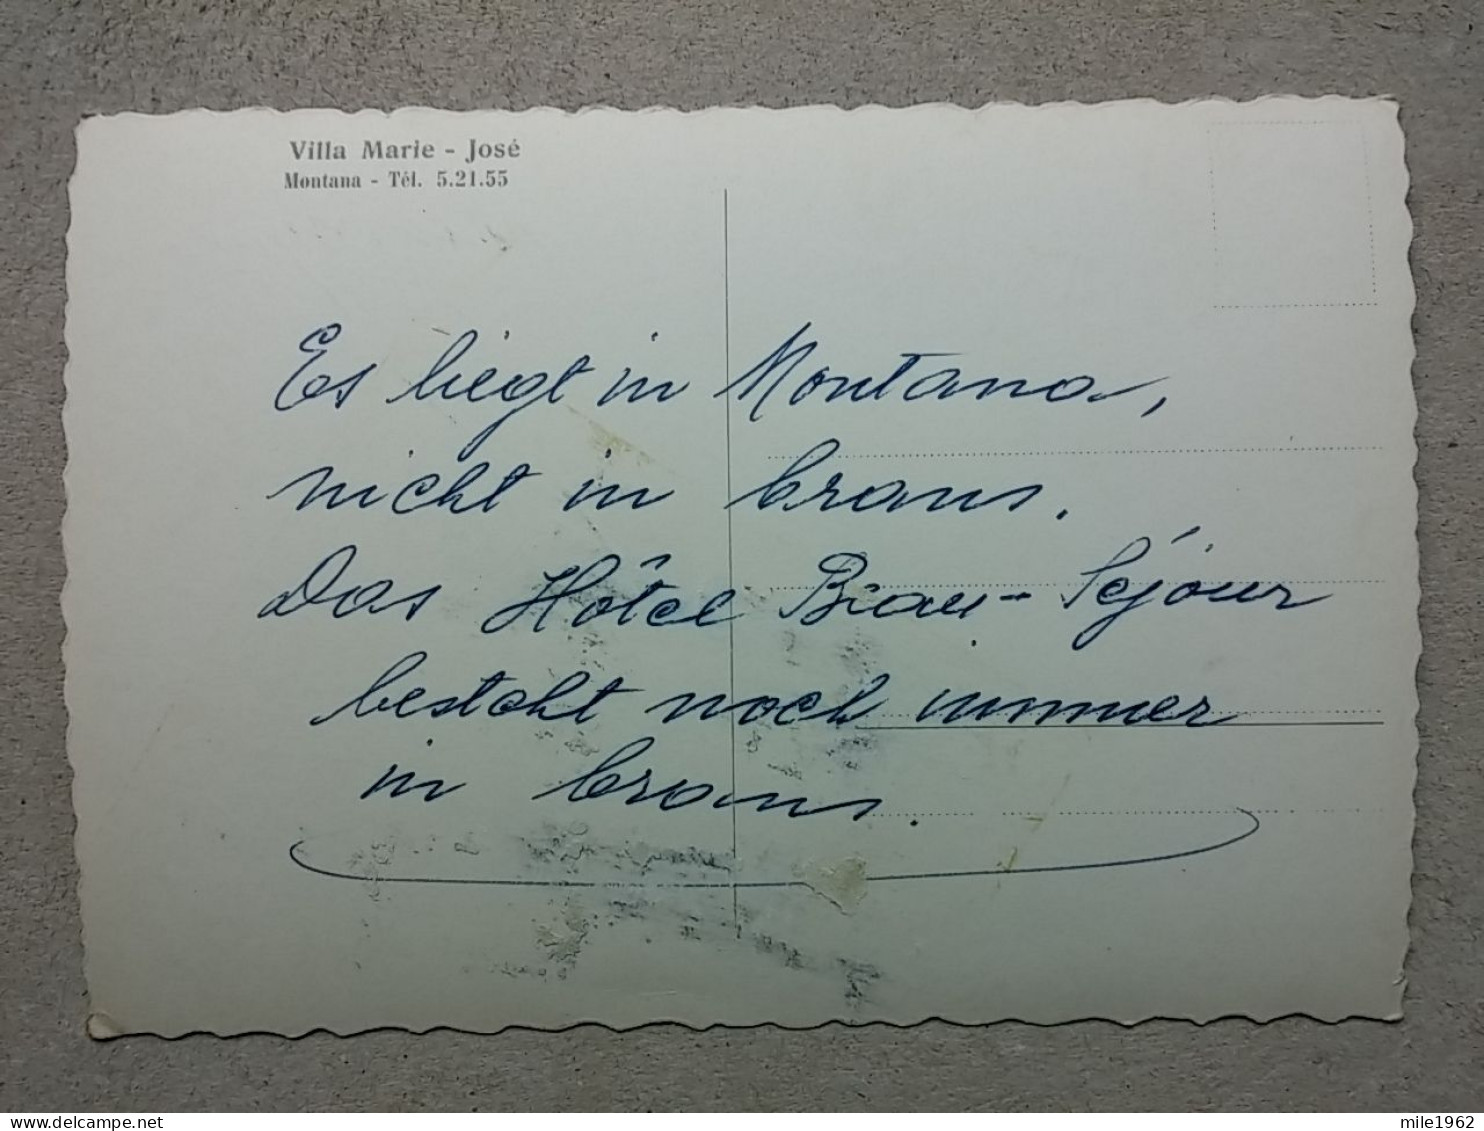 Villa Marie - José
Montana - Tél. 5.21.55
Es liegt in Montana,
nicht in Crans.
Das Hôtel Beau-Séjour
besteht noch immer
in Crans.
delcampe.net
mile1962